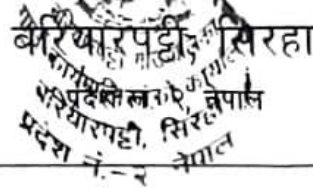 बरियारपट्टी, सिरहा
प्रदेश नं. २, नेपाल
बरियारपट्टी, सिरहा
प्रदेश नं.-२ नेपाल